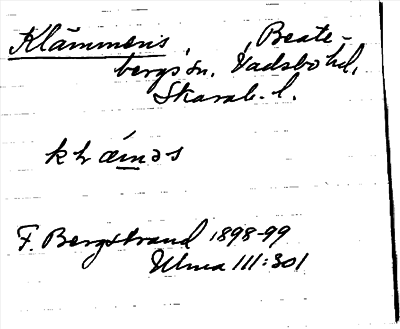 Klämmens, Beate-
bergs sn. Vadsbo hd.
Skarab. l.
klæməs
F. Bergstrand 1898-99
Ulma 111:301